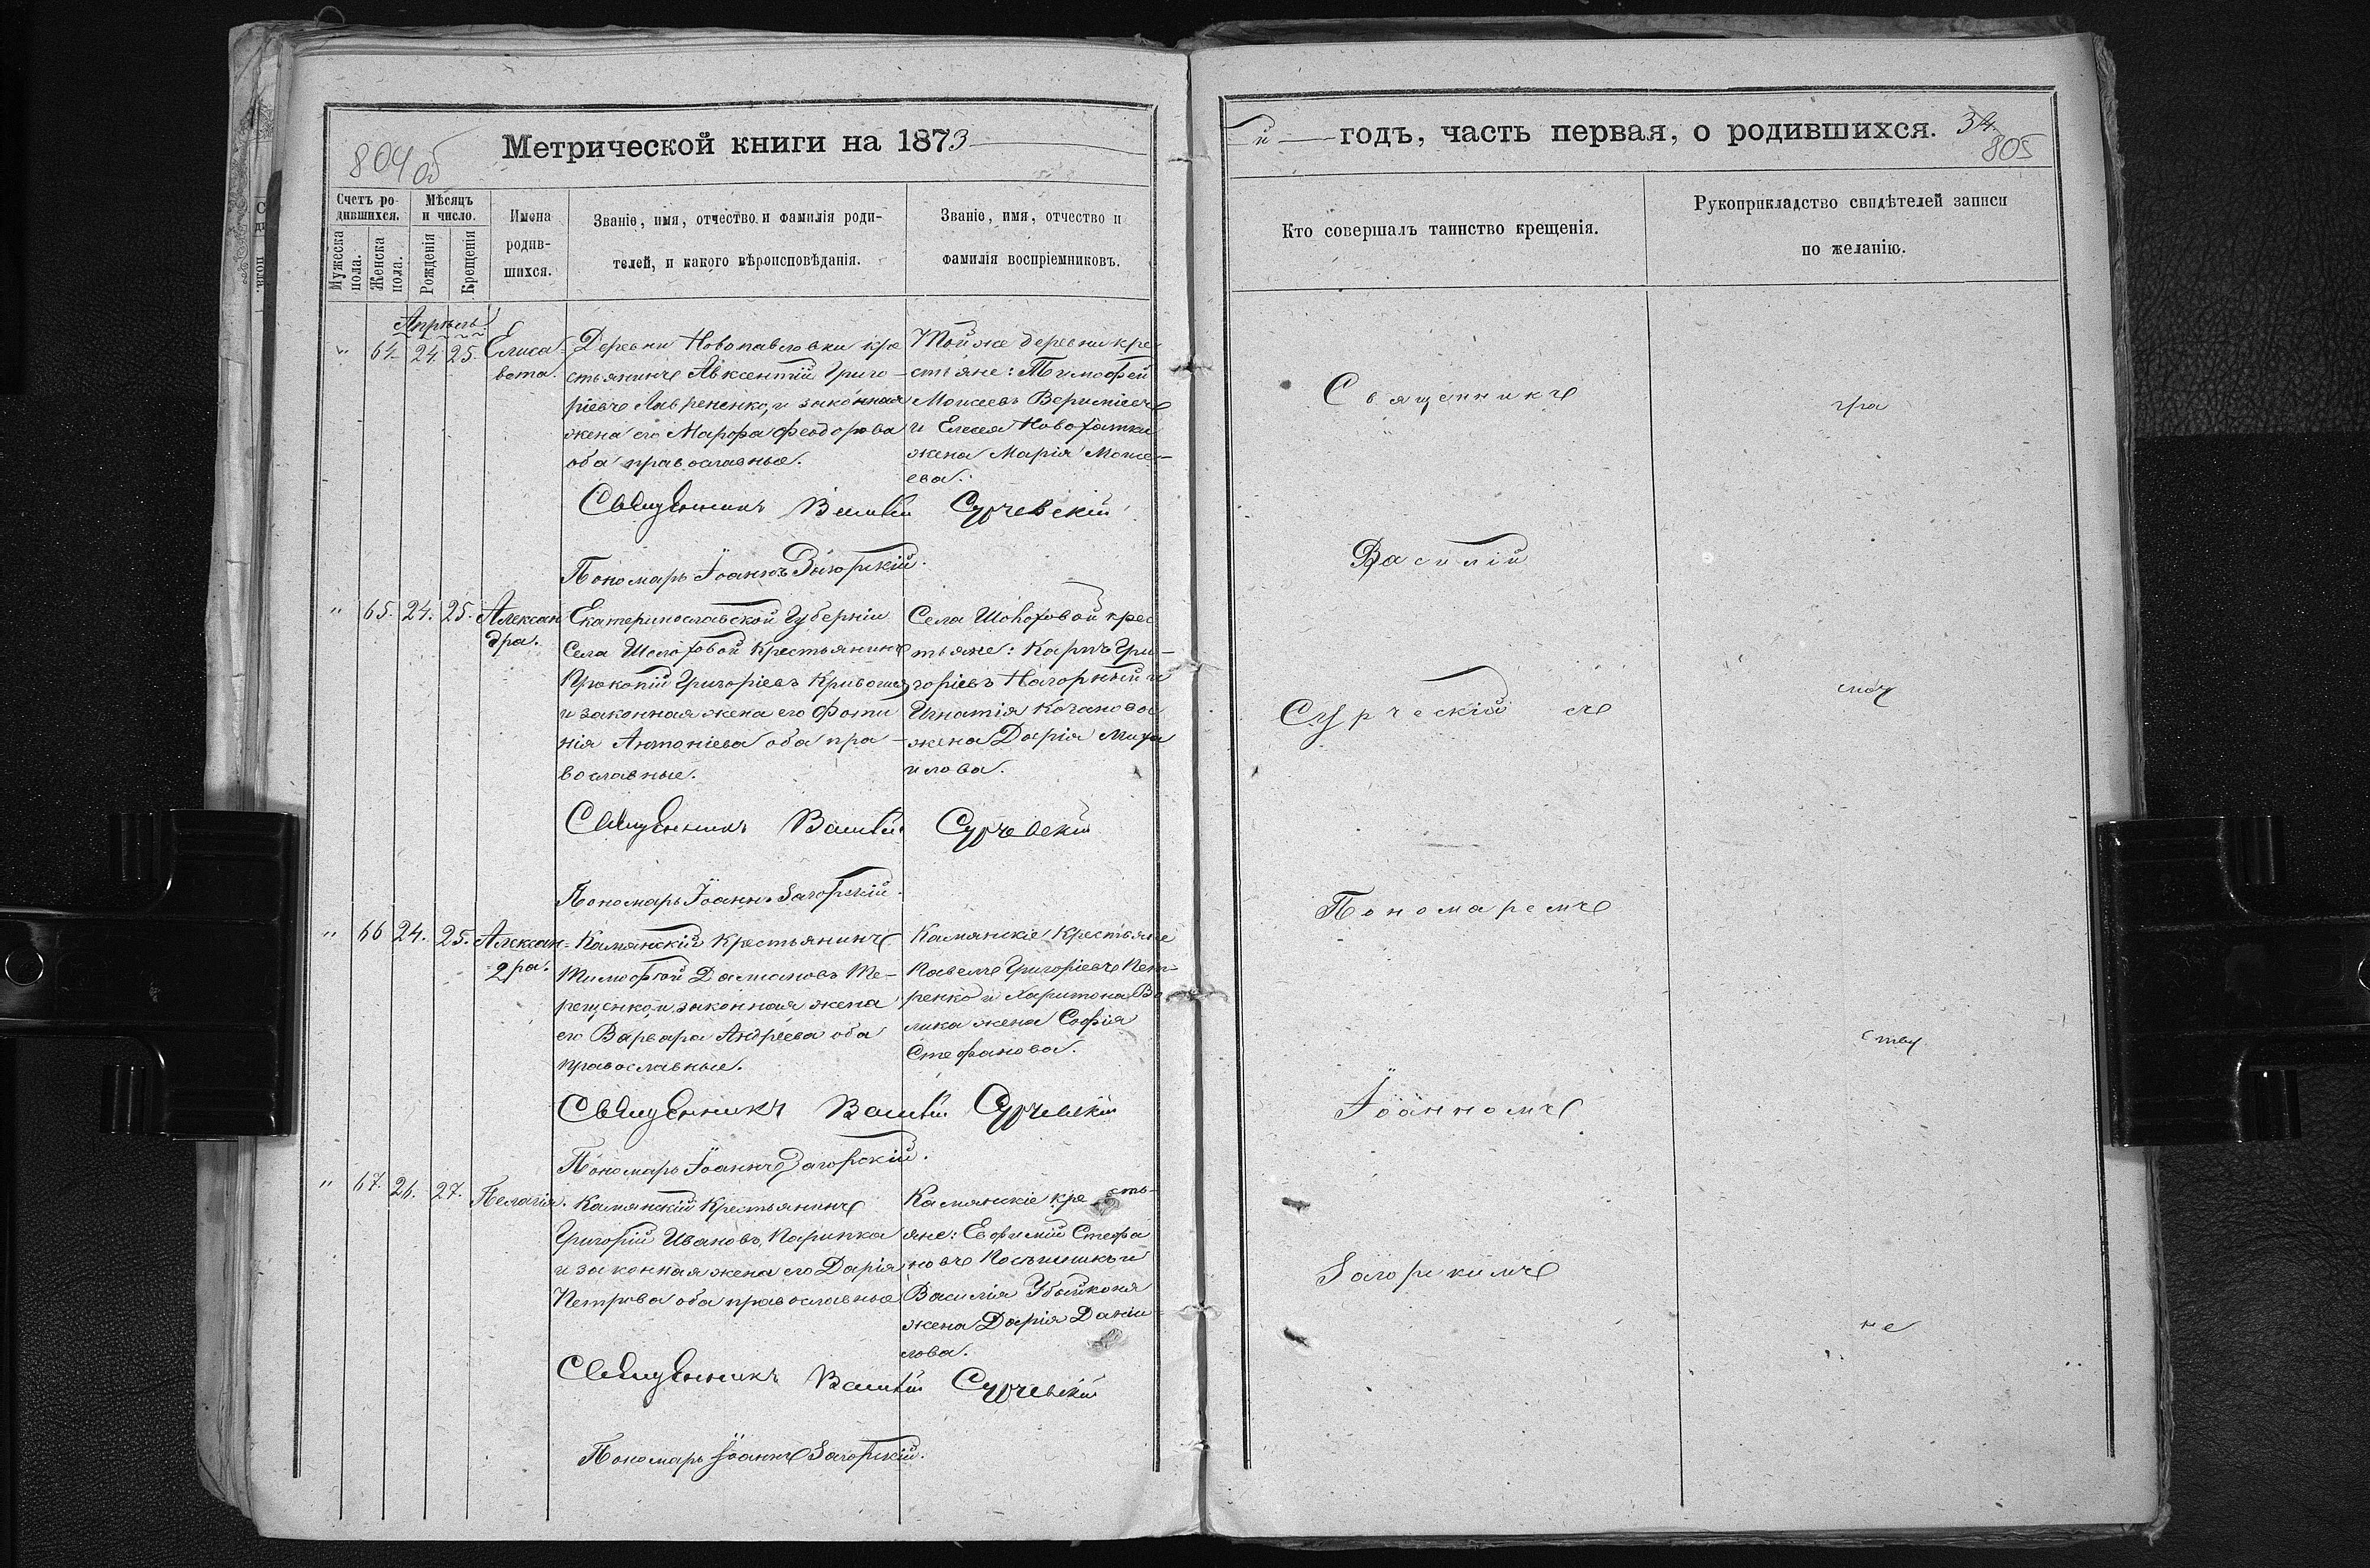 Метрической книги на 1873
804 об
Счетъ ро-
дившихся.
Мужеска
пола.
Женска
пола.
Мѣсяцъ
и число.
Рожденія
Крещенія
Имена
родив-
шихся.
Званіе, имя, отчество и фамилія роди-
телей, и какого вѣроисповѣданія.
Званіе, имя, отчество и
фамилія воспріемниковъ.
Апрѣль
" 64. 24. 25. Елиса-
вета.
Деревни Новопавловки кре
стьянинъ Авксентій Григо-
ріевъ Лавриненко, и законная
жена его Марѳа Ѳеодорова
оба православные.
Той же деревни кре
стьяне: Тимоѳей
Моисеевъ
и Елисея
жена Марія Моисе-
ева.
Священникъ Василій Сурчевскій
Пономарь Іоаннъ Загорскій.
" 65. 24. 25. Алексан
дра.
Екатеринославской Губерніи
Села Шолоховой крестьянинъ
Прокопій Григоріевъ
и законная жена его Фоти
нія Антоніева оба пра-
вославные.
Села Шолоховой крес
тьяне: Карпъ Гри-
горіевъ Нагорный и
Игнатія Коганова
жена Дарія Миха
илова.
Священникъ Василій Сурчевскій
Пономарь Іоаннъ Загорскій.
" 66 24. 25. Алексан-
дра.
Камянскій крестьянинъ
Тимоѳей Даміановъ Те-
рещенко, и законная жена
его Варвара Андреева оба
православные.
Камянскіе крестьяне
Павелъ Григоріевъ Пет-
ренко и Харитона
жена Софія
Стефанова.
Священникъ Василій Сурчевскій
Пономарь Іоаннъ Загорскій.
" 67. 26. 27. Пелагія.
Камянскій крестьянинъ
Григорій Ивановъ
и законная жена его Дарія
Петрова оба православные
Камянскіе кресть-
яне: Евфимій Стефа
новъ
Василія Убыйконя
жена Дарія Даніи
лова.
Священникъ Василій Сурчевскій
Пономарь Іоаннъ Загорскій.
й годъ, часть первая, о родившихся. 34.
805
Кто совершалъ таинство крещенія.
Рукоприкладство свидѣтелей записи
по желанію.
Священникъ
Василій
Сурчевскій съ
Пономаремъ
Іоанномъ
Загорскимъ
гра
мот
ству
не